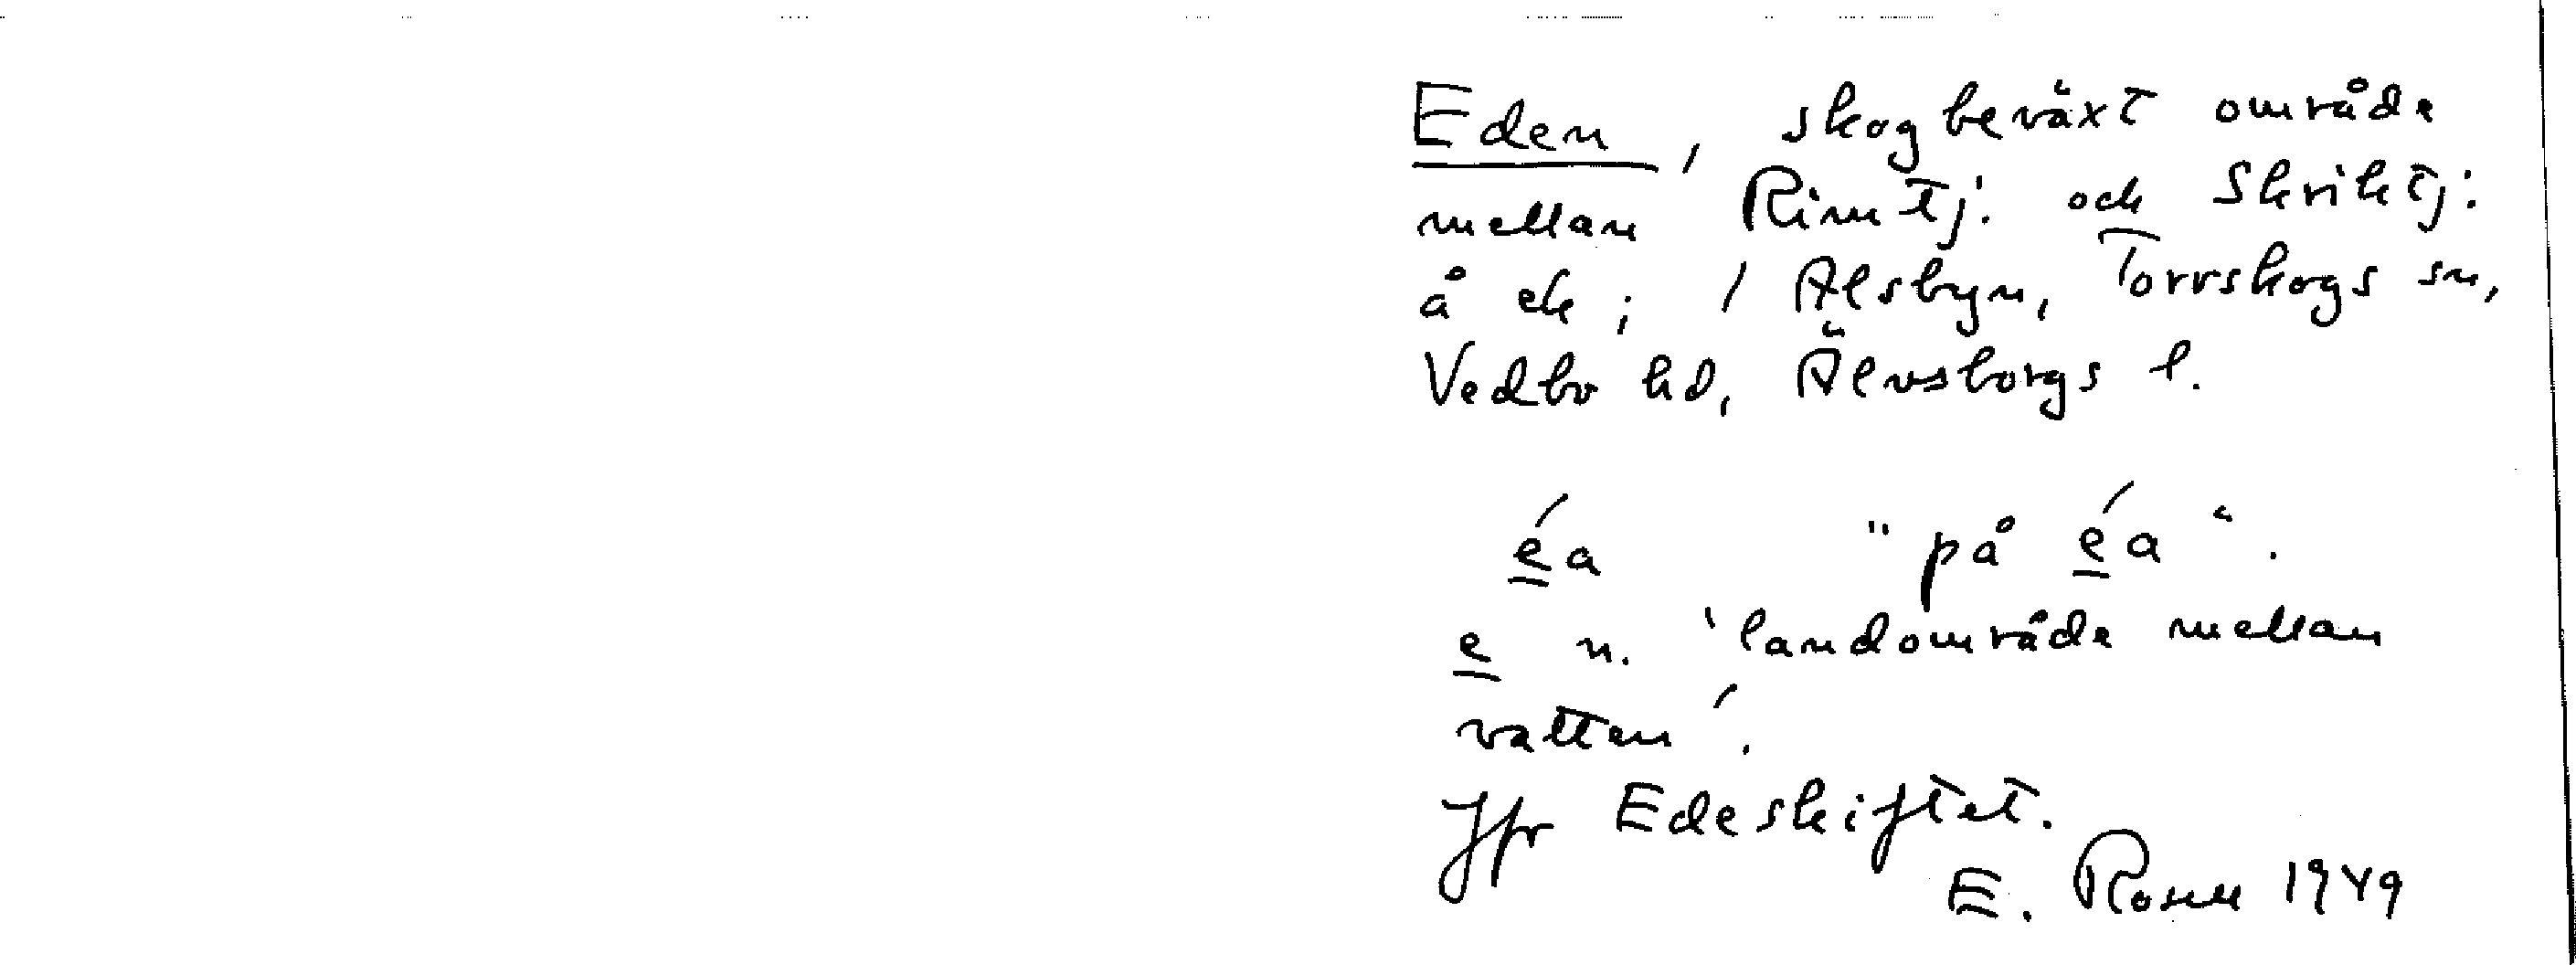 Eden, skogbeväxt område
mellan Rimtj. och Skriktj:
å ek; / Ålsbyn, Torrskogs sn,
Vedbo hd, Älvsborgs l.
éa "på éa".
e n. 'landområde mellan
vatten'.
Jfr Edeskiftet.
E. Rosell 1949